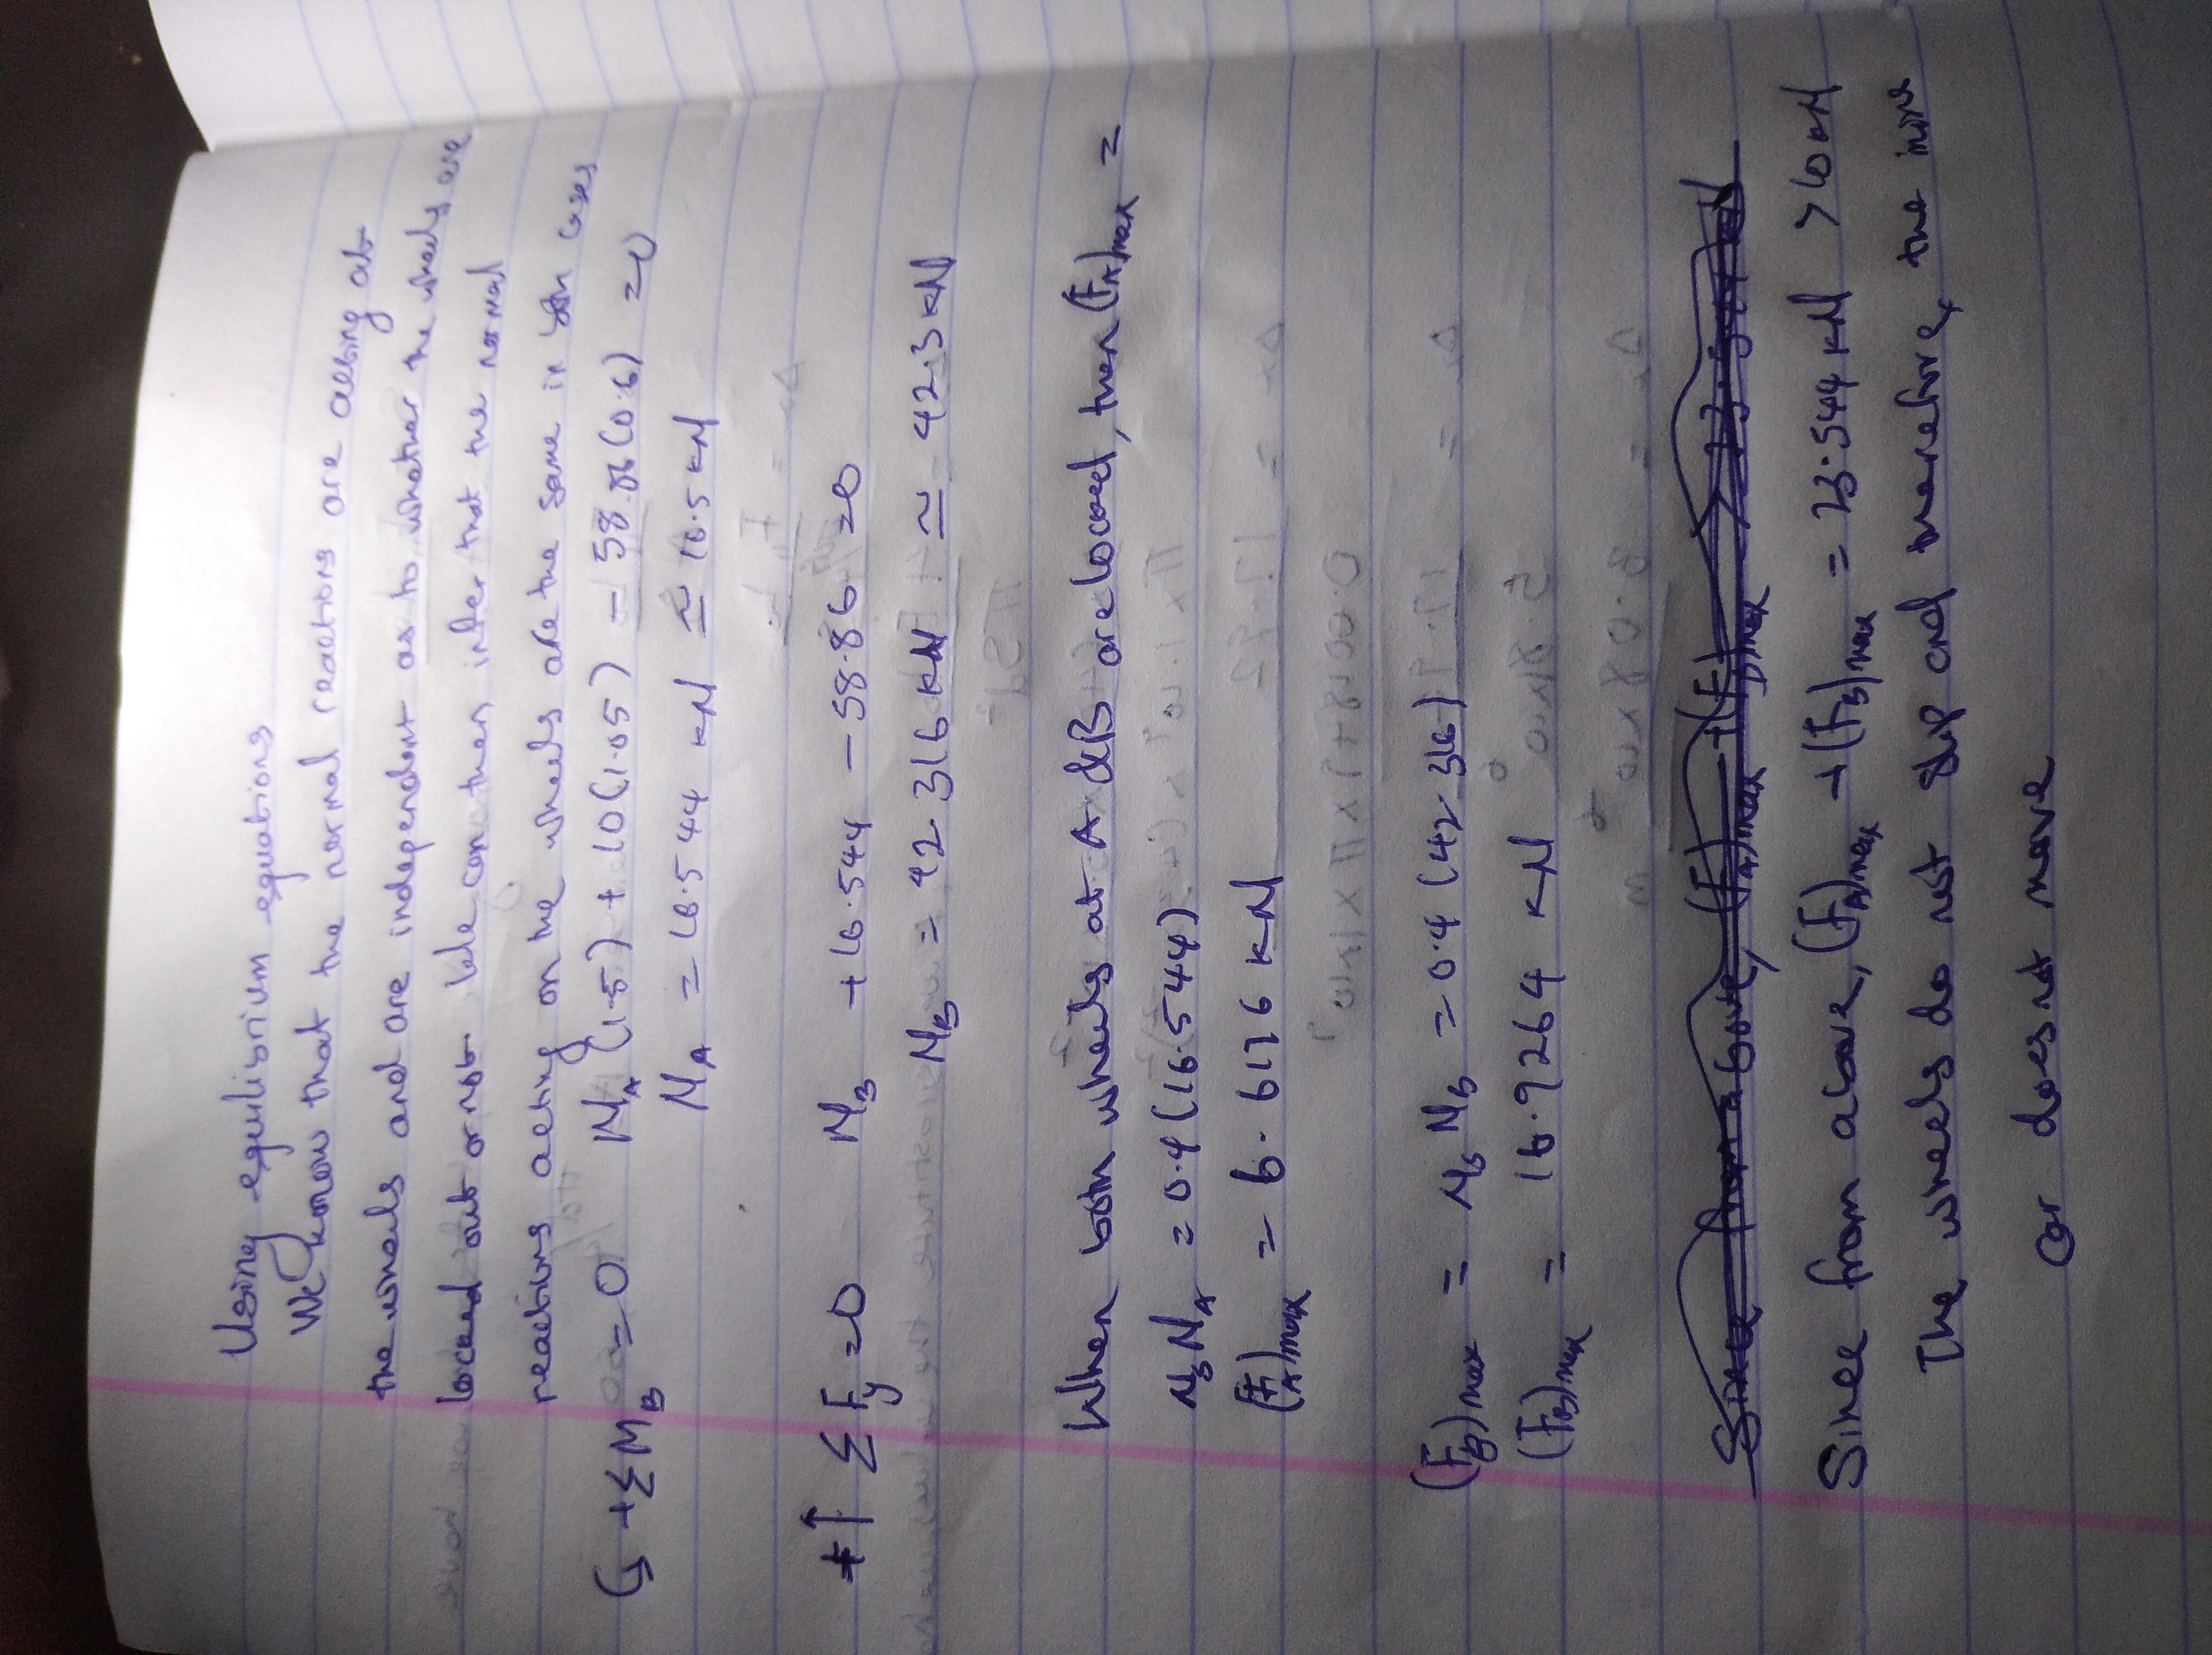 Using equilibrium equations
We know that the normal reactions are acting at
the wheels and are independent as to whether the wheels are
locked out or not. We can then infer that the normal
reactions acting on the wheels are the same in both cases
↺ +ΣM_B = 0 N_A (1.5) + 10(1.05) - 58.86(0.6) = 0
N_A = 16.544 kN ≃ 16.5 kN
+↑ ΣF_y = 0 N_B + 16.544 - 58.86 = 0
N_B = 42.316 kN ≃ 42.3 kN
When both wheels at A & B are locked, then (F_A)max =
μ_s N_A = 0.4(16.544)
(F_A)max = 6.6176 kN
(F_B)max = μ_s N_B = 0.4(42.316)
(F_B)max = 16.9264 kN
Since from above, (F_A)max + (F_B)max = 23.544 kN > 10 kN
The wheels do not slip and therefore, the mine
car does not move